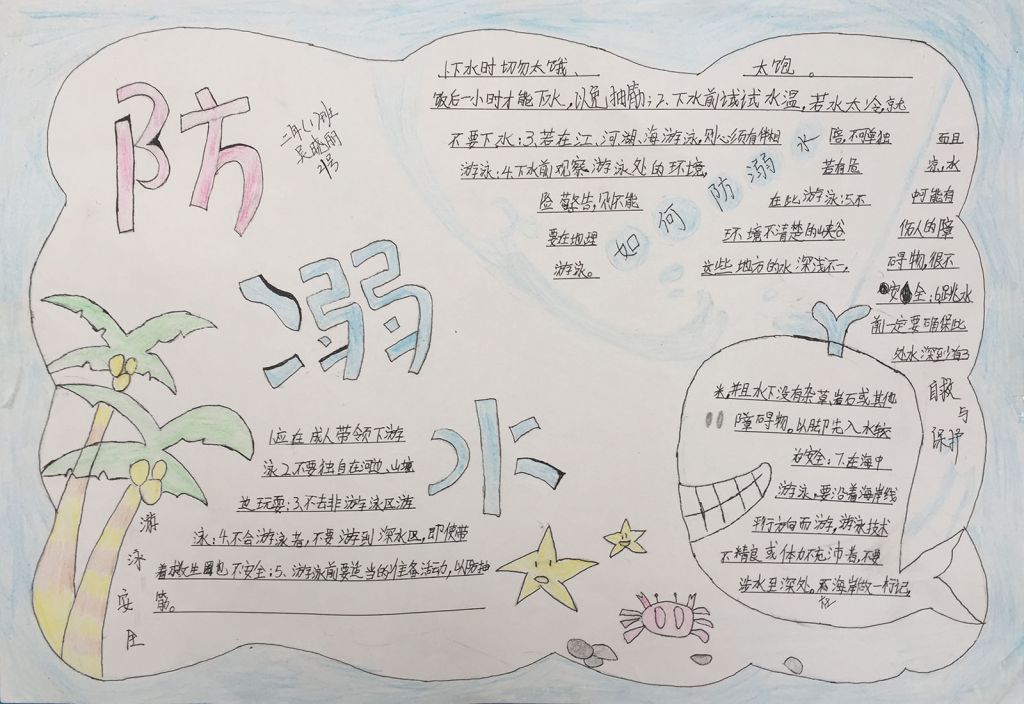 防
溺
水
二年(1)班
吴晓丽
如何防溺水
1.下水时切勿太饿、太饱。
饭后一小时才能下水,以免抽筋;2.下水前试试水温,若水太冷,就
不要下水;3.若在江、河、湖、海游泳,则必须有伴相陪,不可单独
游泳;4.下水前观察游泳处的环境,若有危
险警告,则不能在此游泳;5.不
要在地理环境不清楚的峡谷
游泳。这些地方的水深浅不一,
而且
凉,水
中可能有
伤人的障
碍物,很不
安全;6.跳水
前一定要确保此
处水深到有3
米,并且水下没有杂草、岩石或其他
障碍物。以脚先入水较
为安全;7.在海中
游泳,要沿着海岸线
平行方向而游,游泳技术
不精良或体力不充沛者,不要
涉水至深处。在海岸做一标记,
自救
与
保护
1.应在成人带领下游
泳2.不要独自在河边、山塘
边玩耍;3.不去非游泳区游
泳;4.不会游泳者,不要游到深水区,即使带
着救生圈也不安全;5、游泳前要适当的准备活动,以防抽
筋。
游
泳
安